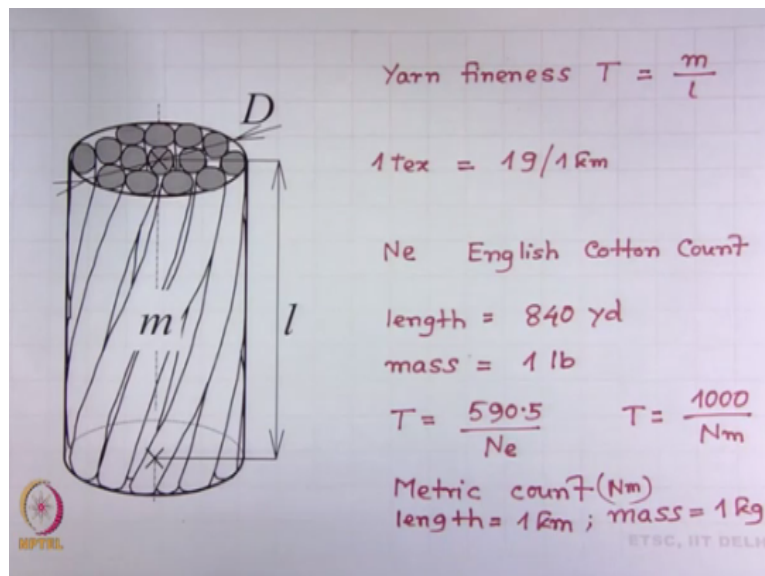 Yarn fineness T = m/l
D
1 tex = 1g/1km
Ne English Cotton Count
length = 840 yd
mass = 1 lb
m
l
T = 590.5/Ne T = 1000/Nm
Metric count (Nm)
length = 1 km ; mass = 1 kg
NPTEL
ETSC, IIT DELH